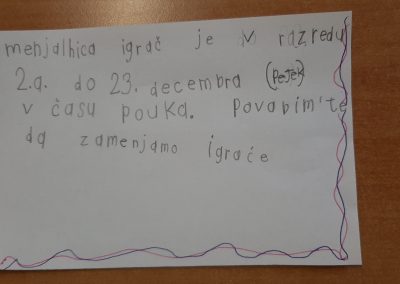 menjalnica igrač je v razredu
2.a. do 23. decembra (PETEK)
v času pouka. Povabim te
da zamenjamo igrače